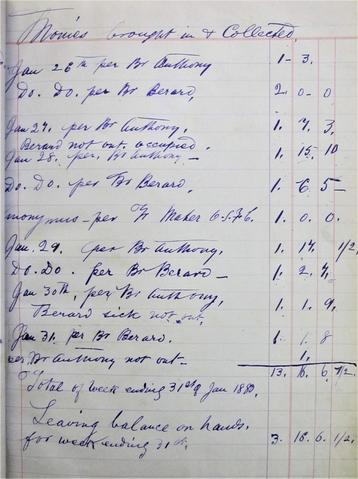 Monies brought in & Collected.
Jan 26th per Br Anthony 1 - 3.
Do. Do. per Br Berard, 2. 0 - 0
Jan 27. per Br Anthony, 1. 7. 3.
Berard not out. occupied.
Jan 28. per. Br Anthony - 1. 15. 10
Do. Do. per Br Berard, 1. 6. 5 -
per Fr Maher O.S.F.C. 1. 0. 0.
Jan. 29. per Br Anthony, 1. 14. 1/2.
Do. Do. per Br Berard - 1. 2. 7.
Jan 30th, per Br Anthony, 1. 1. 9.
Berard sick not out.
Jan 31. per Br Berard. 1. 8
per Br Anthony not out - 1.
Total of week ending 31st of Jan 1880. 13. 6. 1/2.
Leaving balance on hands.
for week ending 31st. 3. 18. 6. 1/2.